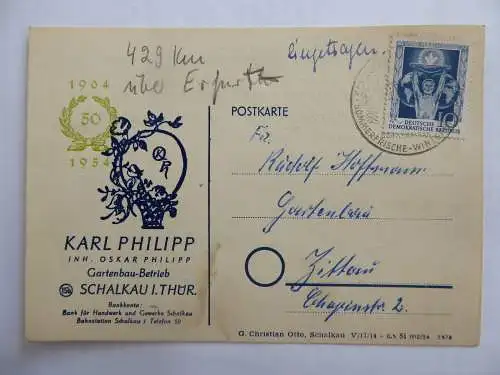 429 km
über Erfurt
eingetragen.
1904
50
1954
KARL PHILIPP
INH. OSKAR PHILIPP
Gartenbau-Betrieb
SCHALKAU I. THÜR.
Bankkonto:
Bank für Handwerk und Gewerbe Schalkau
Bahnstation Schalkau / Telefon 50
POSTKARTE
DEUTSCHE
DEMOKRATISCHE REPUBLIK
10
SOMMERFRISCHE-WINTER
Fa.
Rudolf Hoffmann
Gartenbau
Zittau
Chopinstr. 2.
G. Christian Otto, Schalkau V/11/14